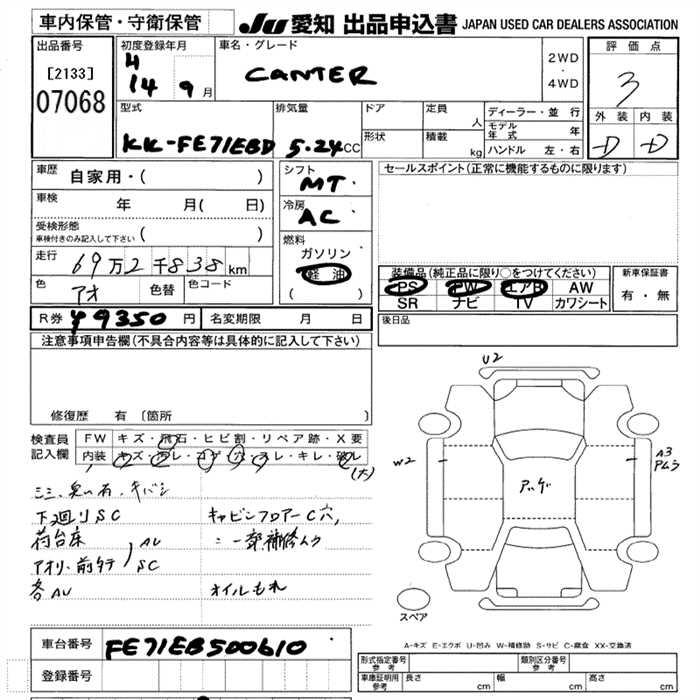 車内保管・守衛保管
JU 愛知 出品申込書 JAPAN USED CAR DEALERS ASSOCIATION
出品番号
[2133]
07068
初度登録年月
H
14 9 月
車名・グレード
CANTER
2WD
・
4WD
評価点
3
外装 内装
D D
型式
KK-FE71EBD
排気量
5.24 CC
ドア
形状
定員 人
積載 kg
ディーラー・並行
モデル年式 年
ハンドル 左・右
車歴
自家用・( )
車検 年 月( 日)
受検形態
車検付きのみ記入して下さい ( )
走行 69万2千838km
色 アオ 色替 色コード
シフト
MT
冷房
AC
燃料
ガソリン
軽油
( )
セールスポイント(正常に機能するものに限ります)
装備品(純正品に限り○をつけてください)
PS PW エアB AW
SR ナビ TV カワシート
新車保証書
有・無
R券 ¥9350 円 名変期限 月 日
後日品
注意事項申告欄(不具合内容等は具体的に記入して下さい)
修復歴 有 [箇所
検査員
記入欄
FW キズ・飛石・ヒビ割・リペア跡・X要
内装 キズ・ヨゴレ・コゲ・穴・スレ・キレ・破レ
(大)
下廻りSC
荷台床
AU
SC
各AU
キャビンフロアーC穴,
オイルもれ
U2
W2
A3
スペア
A-キズ E-エクボ U-凹み W-補修跡 S-サビ C-腐食 XX-交換済
車台番号 FE71EB500610
登録番号
形式指定番号
参考
類別区分番号
参考
車庫証明用
参考
長さ cm 幅 cm 高さ cm